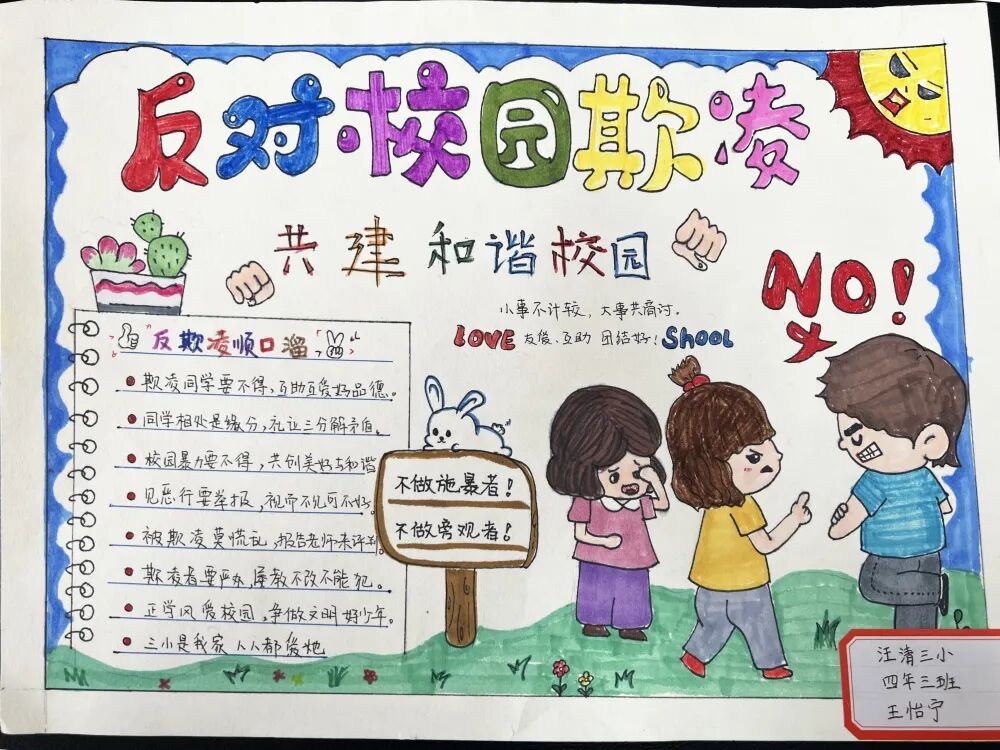 反对校园欺凌
共建和谐校园
小事不计较，大事共商讨。
LOVE 友爱、互助 团结好！Shool
NO!
"反欺凌顺口溜"
欺凌同学要不得，互助互爱好品德。
同学相处是缘分，礼让三分解矛盾。
校园暴力要不得，共创美好与和谐
见恶行要举报，视而不见可不好。
被欺凌莫慌乱，报告老师来评判。
欺凌者要严办，屡教不改不能犯。
正学风爱校园，争做文明好少年。
三小是我家人人都爱她
不做施暴者！
不做旁观者！
汪清三小
四年三班
王怡宁